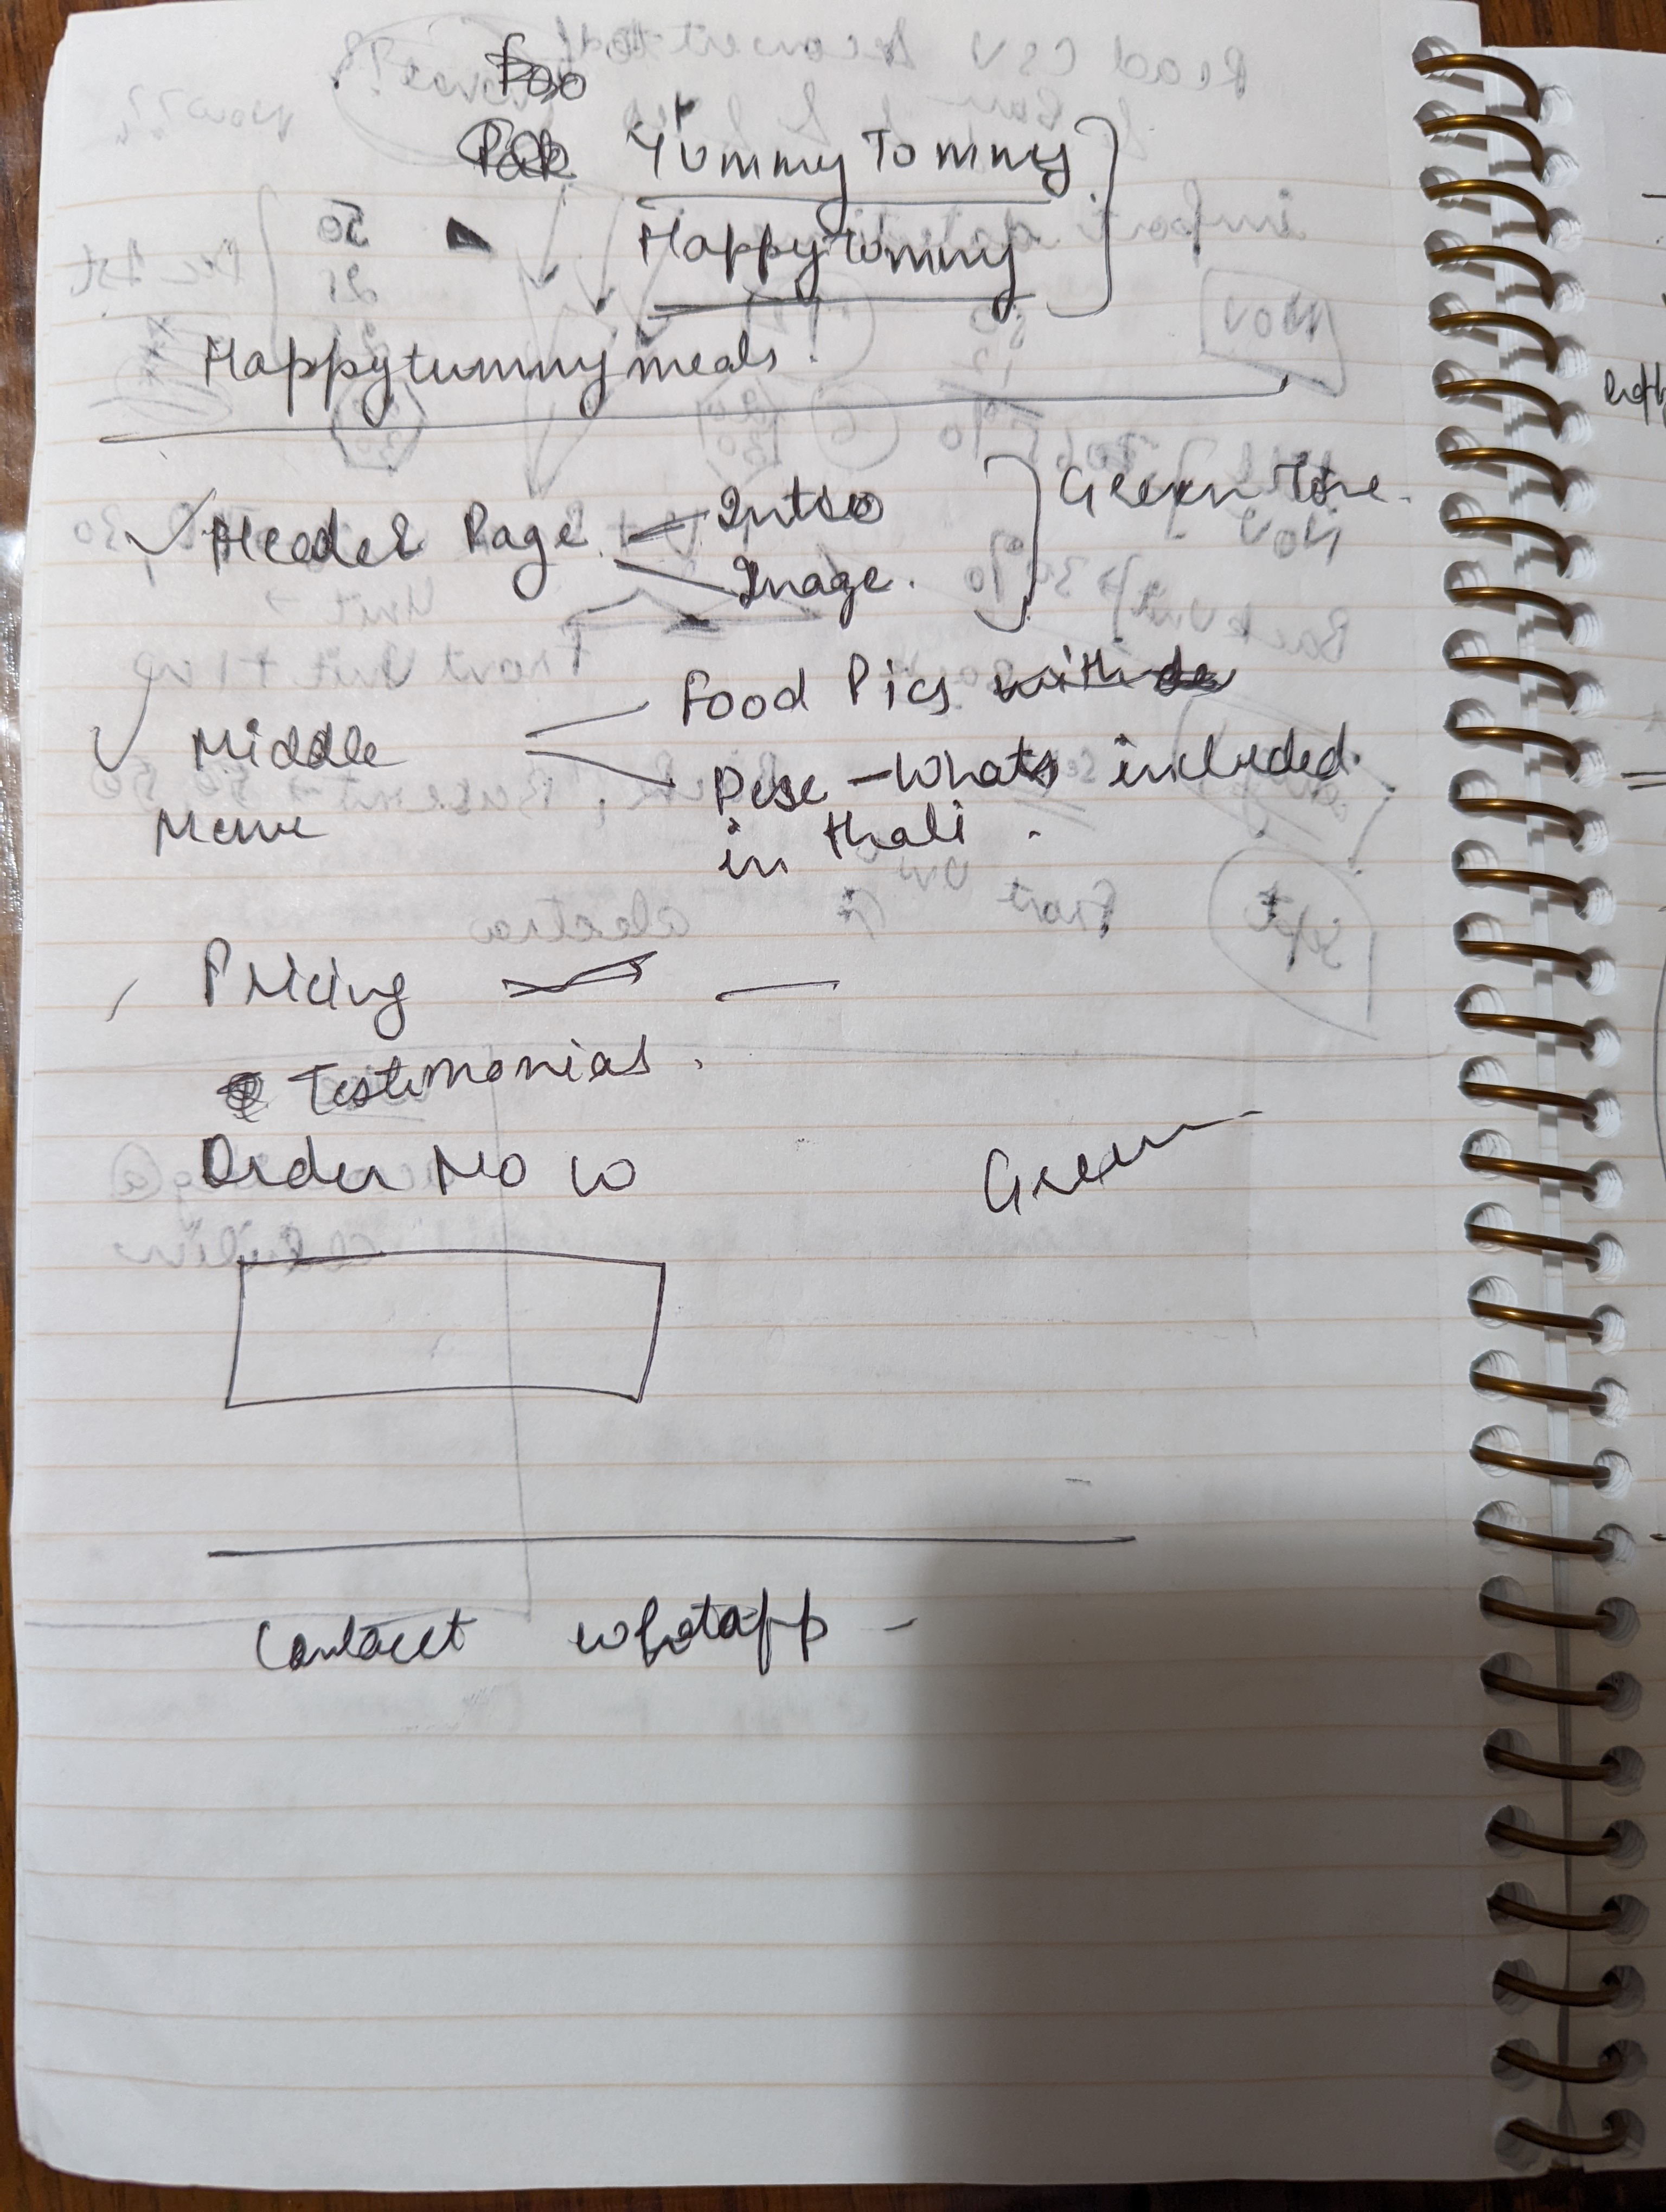 Foo
Yummy Tommy
Happy tummy
Happytummymeals.
Header Page Intro
Image.
Green Tone.
Food Pics with de
Middle
Menu
Desc - Whats included.
in thali.
Pricing
Testimonial.
Order Now
Green
Contact whatapp -